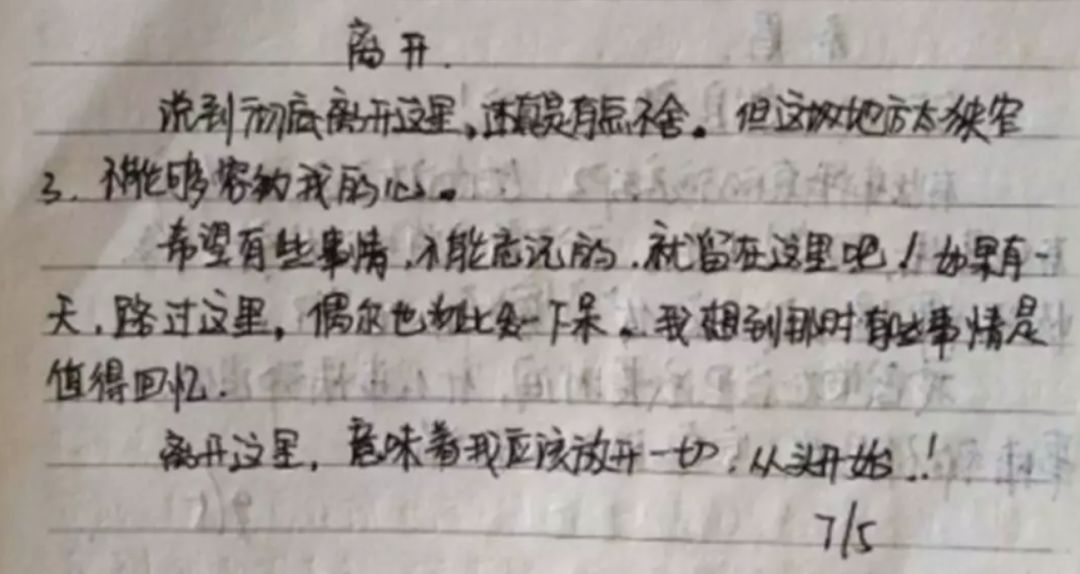 离开.
说到彻底离开这里,还真是有点不舍。但这块地方太狭窄
了.不能够容纳我的心。
希望有些事情,不能忘记的,就留在这里吧!如果有一
天,路过这里,偶尔也会一下来。我想到那时有些事情是
值得回忆.
离开这里,意味着我应该放开一切,从头开始..!
7/5